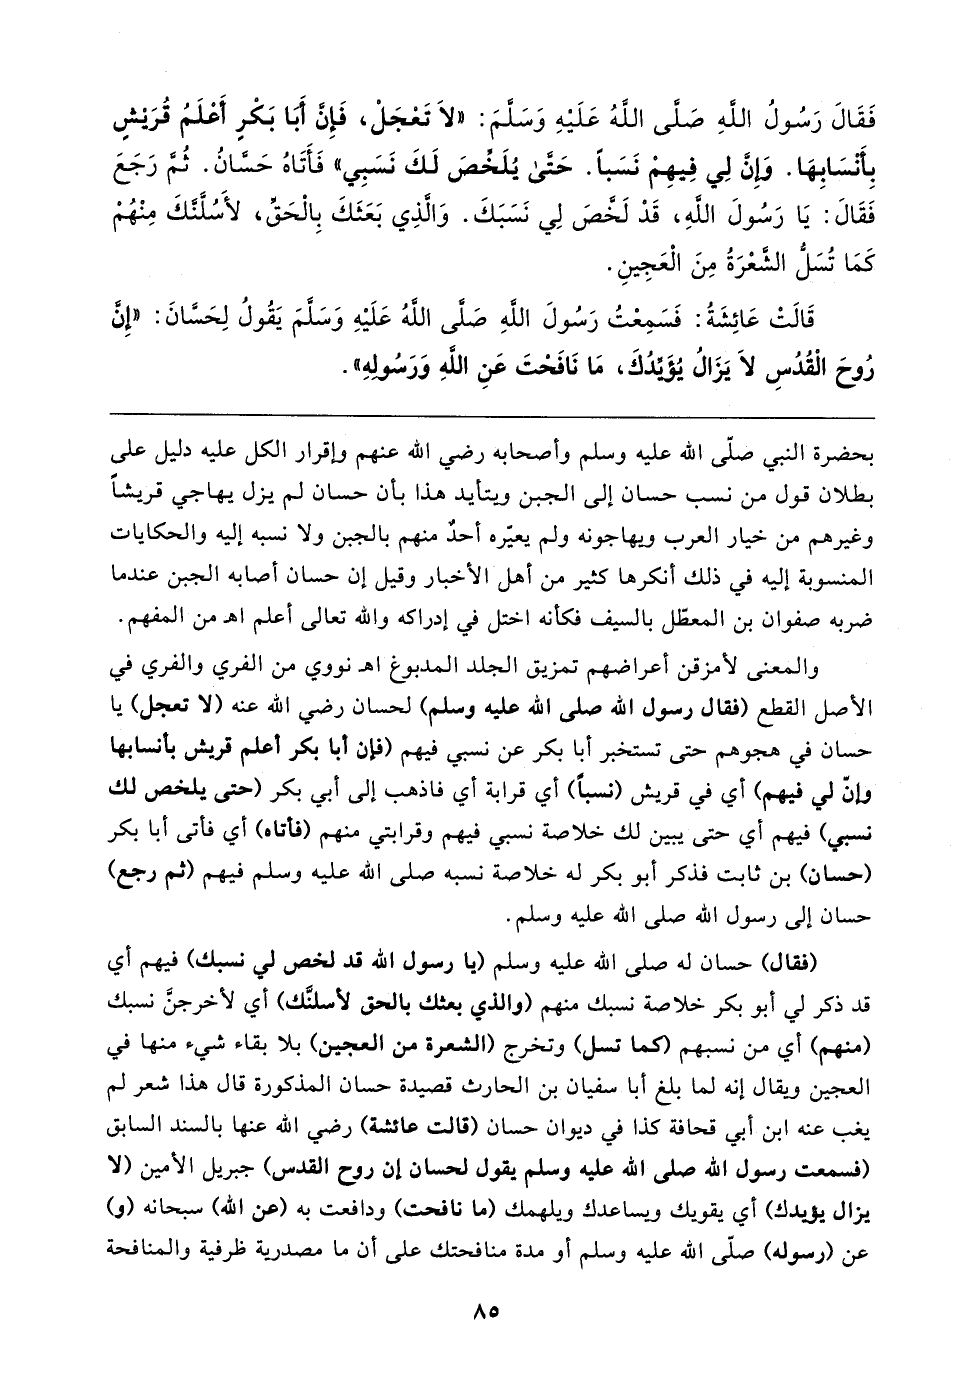 فَقَالَ رَسُولُ اللَّهِ صَلَّى اللَّهُ عَلَيْهِ وَسَلَّمَ: «لاَ تَعْجَلْ، فَإِنَّ أَبَا بَكْرٍ أَعْلَمُ قُرَيْشٍ
بِأَنْسَابِهَا. وَإِنَّ لِي فِيهِمْ نَسَباً. حَتَّىٰ يُلَخِّصَ لَكَ نَسَبِي» فَأَتَاهُ حَسَّانُ. ثُمَّ رَجَعَ
فَقَالَ: يَا رَسُولَ اللَّهِ، قَدْ لَخَّصَ لِي نَسَبَكَ. وَالَّذِي بَعَثَكَ بِالْحَقِّ، لأَسُلَّنَّكَ مِنْهُمْ
كَمَا تُسَلُّ الشَّعْرَةُ مِنَ الْعَجِينِ.
قَالَتْ عَائِشَةُ: فَسَمِعْتُ رَسُولَ اللَّهِ صَلَّى اللَّهُ عَلَيْهِ وَسَلَّمَ يَقُولُ لِحَسَّانَ: «إِنَّ
رُوحَ الْقُدُسِ لاَ يَزَالُ يُؤَيِّدُكَ، مَا نَافَحْتَ عَنِ اللَّهِ وَرَسُولِهِ».
بحضرة النبي صلّى الله عليه وسلم وأصحابه رضي الله عنهم وإقرار الكل عليه دليل على
بطلان قول من نسب حسان إلى الجبن ويتأيد هذا بأن حسان لم يزل يهاجي قريشاً
وغيرهم من خيار العرب ويهاجونه ولم يعيّره أحدٌ منهم بالجبن ولا نسبه إليه والحكايات
المنسوبة إليه في ذلك أنكرها كثير من أهل الأخبار وقيل إن حسان أصابه الجبن عندما
ضربه صفوان بن المعطّل بالسيف فكأنه اختل في إدراكه والله تعالى أعلم اهـ من المفهم.
والمعنى لأمزقن أعراضهم تمزيق الجلد المدبوغ اهـ نووي من الفري والفري في
الأصل القطع (فقال رسول الله صلى الله عليه وسلم) لحسان رضي الله عنه (لا تعجل) يا
حسان في هجوهم حتى تستخبر أبا بكر عن نسبي فيهم (فإن أبا بكر أعلم قريش بأنسابها
وإنّ لي فيهم) أي في قريش (نسباً) أي قرابة أي فاذهب إلى أبي بكر (حتى يلخص لك
نسبي) فيهم أي حتى يبين لك خلاصة نسبي فيهم وقرابتي منهم (فأتاه) أي فأتى أبا بكر
(حسان) بن ثابت فذكر أبو بكر له خلاصة نسبه صلى الله عليه وسلم فيهم (ثم رجع)
حسان إلى رسول الله صلى الله عليه وسلم.
(فقال) حسان له صلى الله عليه وسلم (يا رسول الله قد لخص لي نسبك) فيهم أي
قد ذكر لي أبو بكر خلاصة نسبك منهم (والذي بعثك بالحق لأسلنَّك) أي لأخرجنَّ نسبك
(منهم) أي من نسبهم (كما تسل) وتخرج (الشعرة من العجين) بلا بقاء شيء منها في
العجين ويقال إنه لما بلغ أبا سفيان بن الحارث قصيدة حسان المذكورة قال هذا شعر لم
يغب عنه ابن أبي قحافة كذا في ديوان حسان (قالت عائشة) رضي الله عنها بالسند السابق
(فسمعت رسول الله صلى الله عليه وسلم يقول لحسان إن روح القدس) جبريل الأمين (لا
يزال يؤيدك) أي يقويك ويساعدك ويلهمك (ما نافحت) ودافعت به (عن الله) سبحانه (و)
عن (رسوله) صلّى الله عليه وسلم أو مدة منافحتك على أن ما مصدرية ظرفية والمنافحة
٨٥